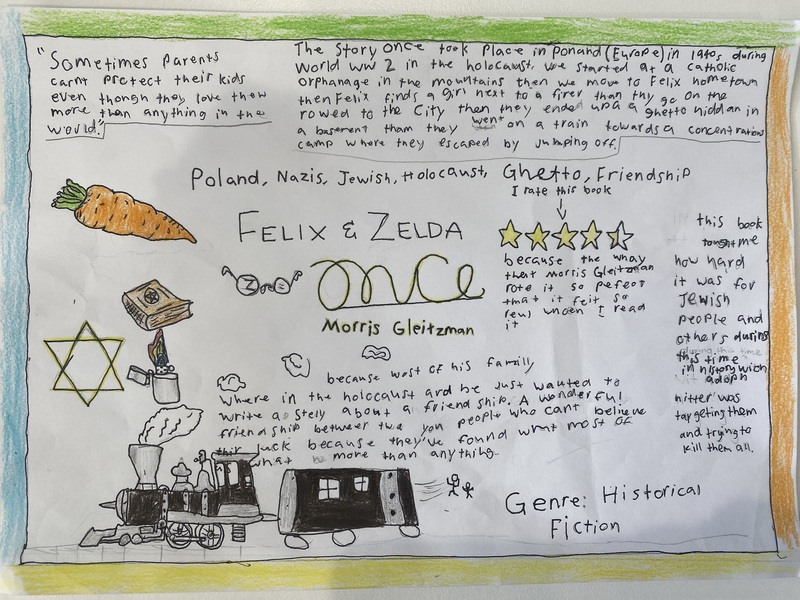 "Sometimes Parents
carn't Protect their kids
even though they love them
more than anything in the
world."
The Story once took Place in Ponand (Europe) in 1940s during
World ww 2 in the holocaust. We started at a catholic
orphanage in the mountains then we move to Felix hometown
then Felix finds a girl next to a firer than thy go on the
rowed to the City then they ended up a a ghetto hiddan in
a basement tham they went on a train towards a concentration
camp where they escaped by Jumping off.
Poland, Nazis, Jewish, Holocaust, Ghetto, Friendship
I rate this book
FELIX & ZELDA
Z
once
Morris Gleitzman
because the whay
that Morris Gleitzman
rote it so perfect
that it felt so
real when I read
it
this book
tought me
how hard
it was for
Jewish
people and
others during
during this time
this time
in history with
adolph
hitler was
targeting them
and trying to
kill them all.
because most of his familly
Where in the holocaust and he Just wanted to
write a story about a friendship. A wonderful
friendship between two you people who cant believe
their luck because they've found what most of
what more than anything.
Genre: Historical
Fiction